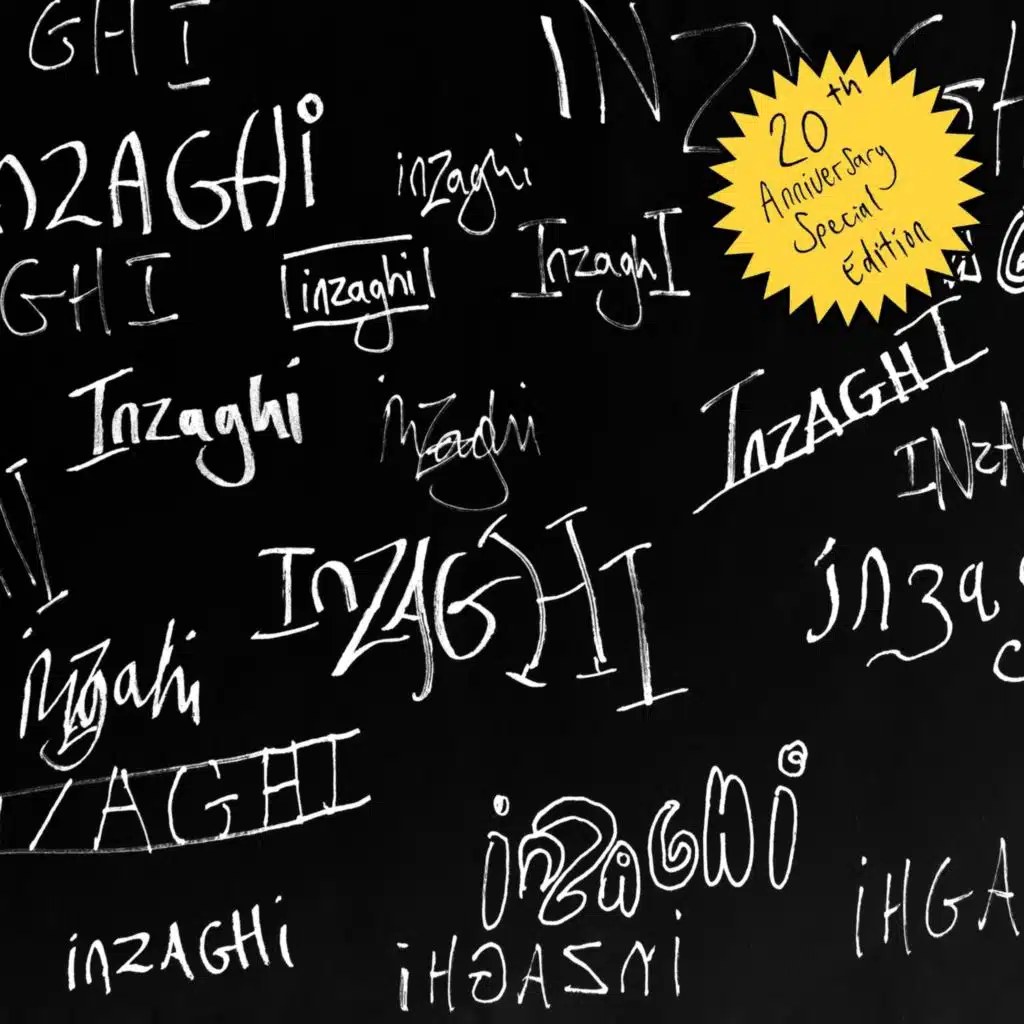 GHI
INZAGHI
20th
Anniversary
Special
Edition
inZAGHi
inzaghi
GHI
inzaghi
InzaghI
Inzaghi
inzaghi
InzAGHI
INZA
InZAGHI
inzag
inzgahi
ZAGHI
inZaGHi
iHGA
inzAGHi
iHGASNi